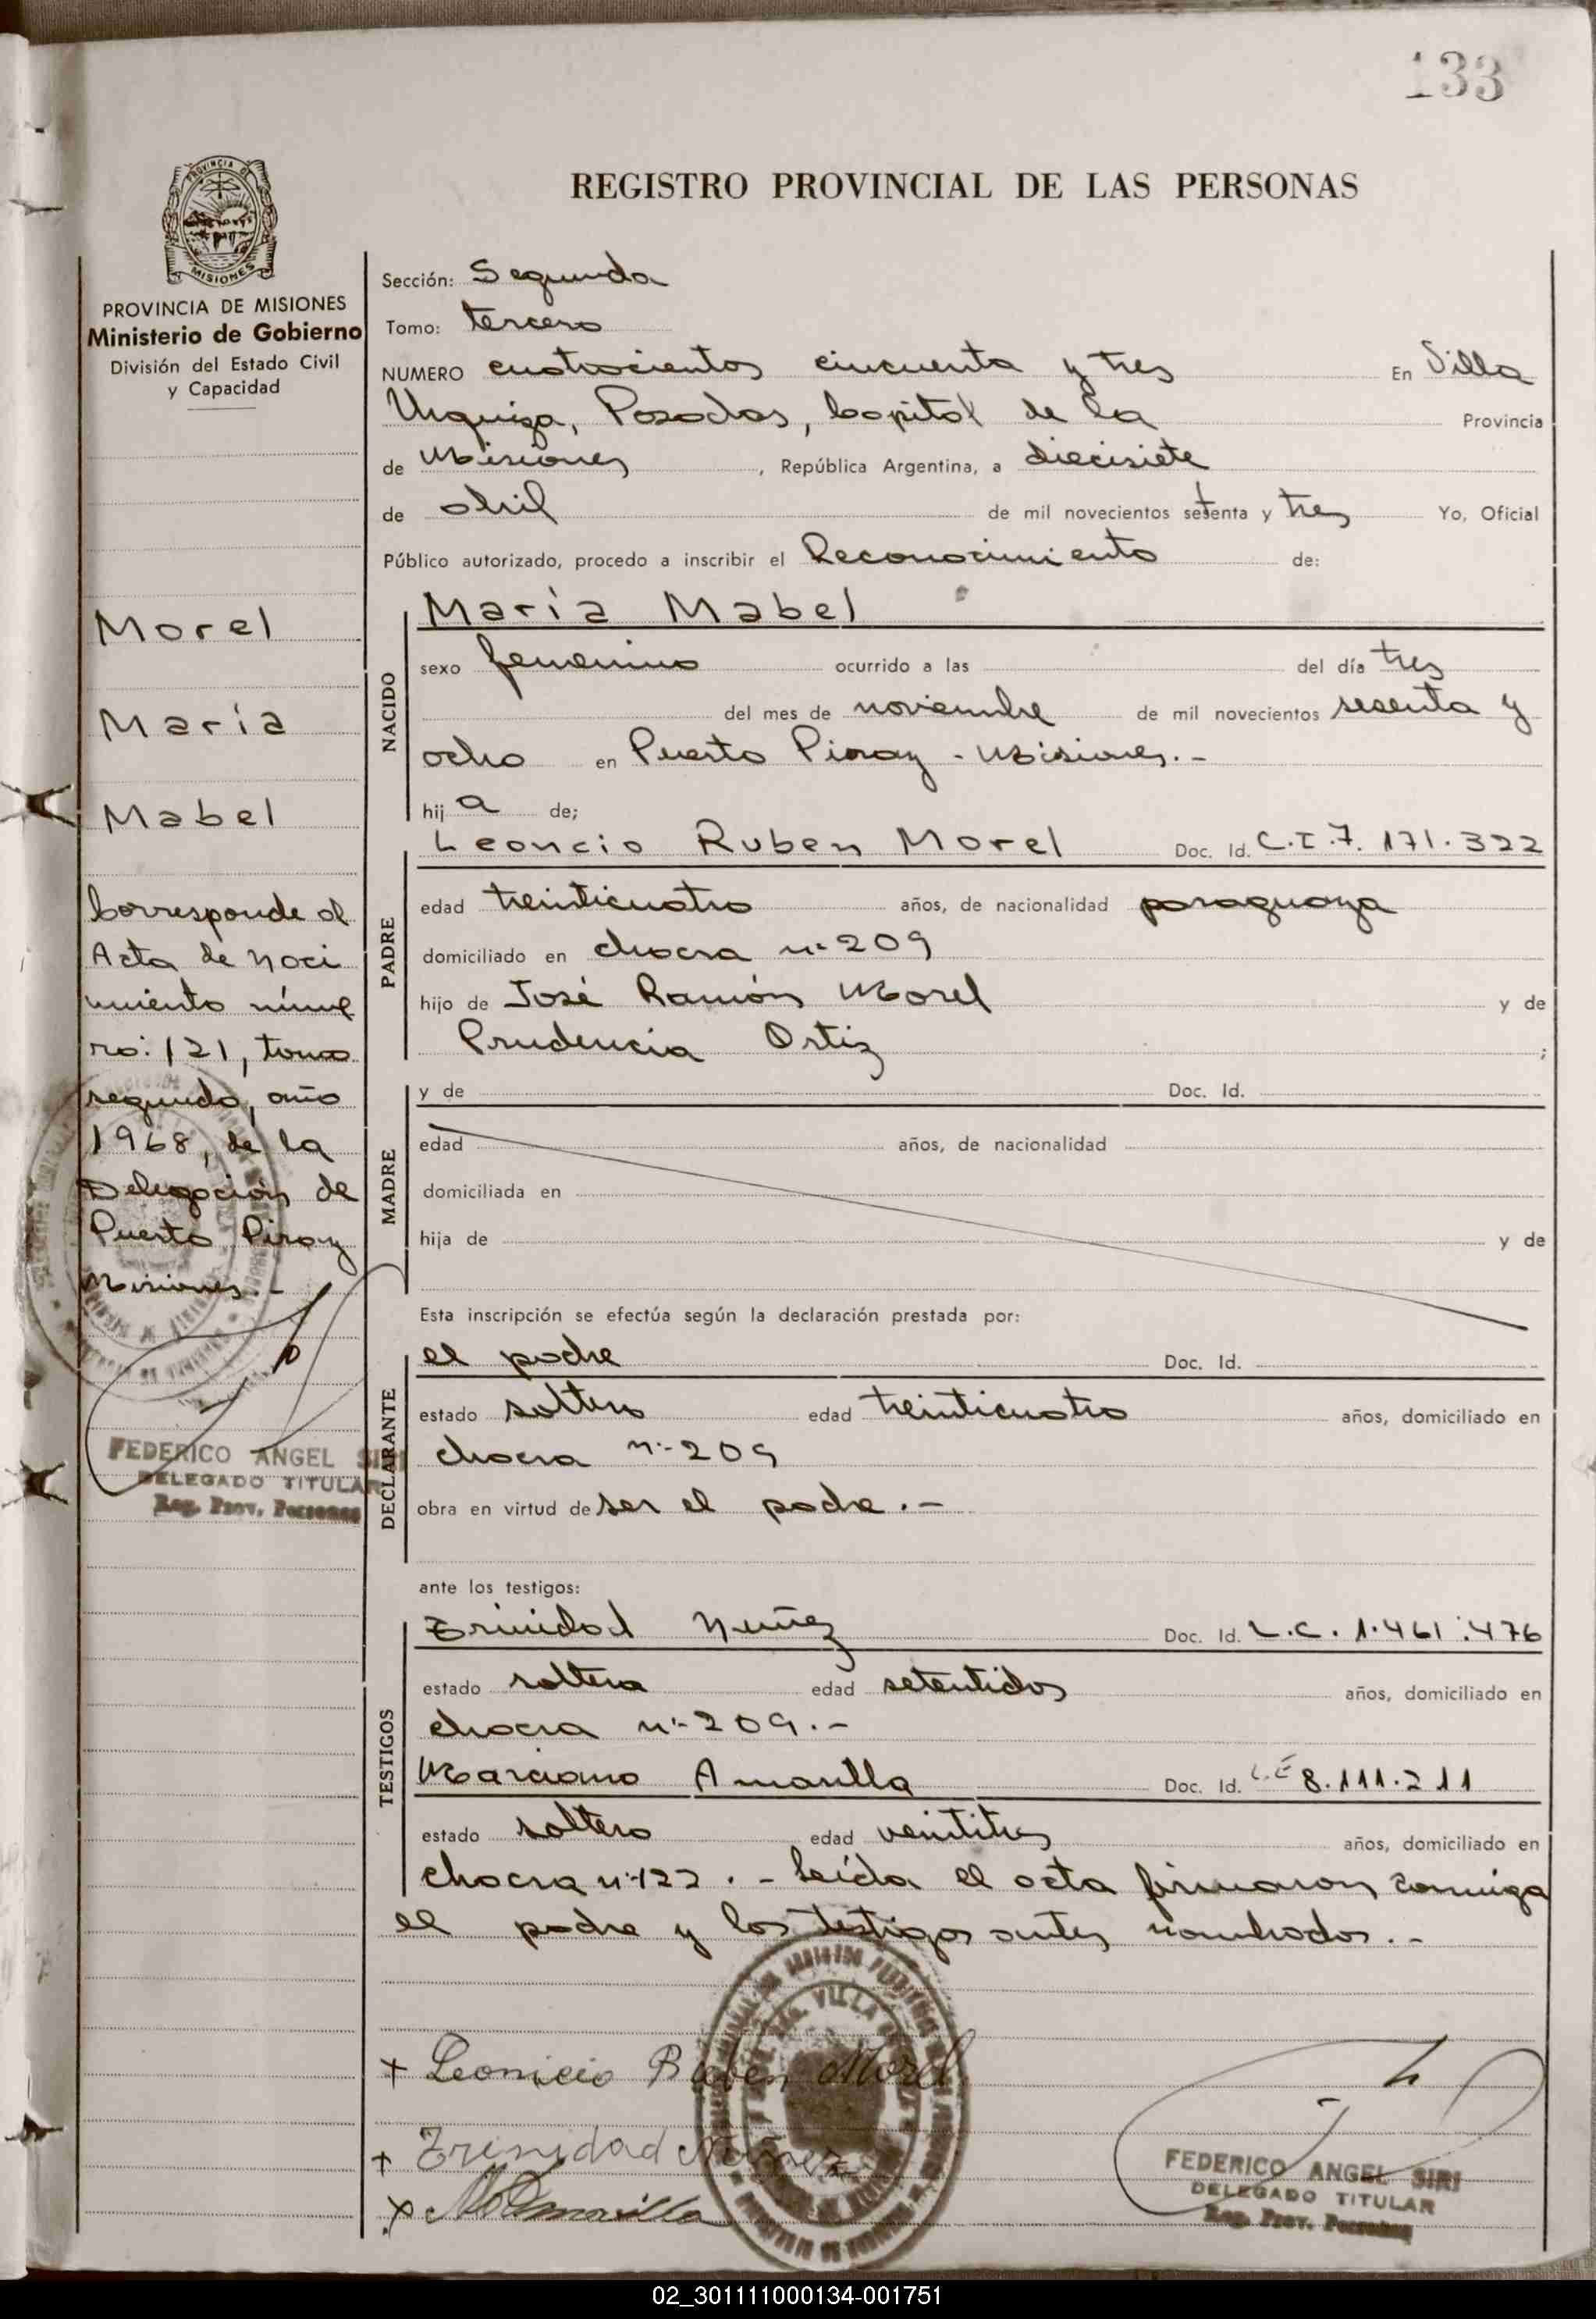 133
REGISTRO PROVINCIAL DE LAS PERSONAS
PROVINCIA DE MISIONES
Ministerio de Gobierno
División del Estado Civil
y Capacidad
Morel
María
Mabel
Corresponde al
Acta de naci
miento núme
ro: 121, tomo
segundo, año
1968, de la
Delegación de
Puerto Piray
Misiones.-
FEDERICO ANGEL SIRI
DELEGADO TITULAR
Reg. Prov. Personas
Sección: Segunda
Tomo: tercero
NUMERO cuatrocientos cincuenta y tres En Villa
Urquiza, Posadas, Capital de la Provincia
de Misiones, República Argentina, a diecisiete
de abril de mil novecientos setenta y tres Yo, Oficial
Público autorizado, procedo a inscribir el Reconocimiento de:
NACIDO
María Mabel
sexo femenino ocurrido a las del día tres
del mes de noviembre de mil novecientos sesenta y
ocho en Puerto Piray - Misiones.-
hija de;
PADRE
Leoncio Ruben Morel Doc. Id. C.I.7.171.322
edad treinticuatro años, de nacionalidad paraguaya
domiciliado en chacra nº 209
hijo de José Ramón Morel y de
Prudencia Ortiz ;
MADRE
y de Doc. Id.
edad años, de nacionalidad
domiciliada en
hija de y de
Esta inscripción se efectúa según la declaración prestada por:
DECLARANTE
el padre Doc. Id.
estado soltero edad treinticuatro años, domiciliado en
chacra nº-209
obra en virtud de ser el padre.-
ante los testigos:
TESTIGOS
Trinidad Nuñez Doc. Id. L.C. 1.461.476
estado soltera edad setentidos años, domiciliado en
chacra nº-209.-
Marciano Amarilla Doc. Id. L.E 8.111.211
estado soltero edad ventitres años, domiciliado en
chacra nº122.- Leída el acta firmaron conmigo
el padre y los testigos antes nombrados.-
+ Leonicio Ruben Morel
+ Trinidad Nuñez
x M Amarilla
FEDERICO ANGEL SIRI
DELEGADO TITULAR
Reg. Prov. Personas
02_301111000134-001751